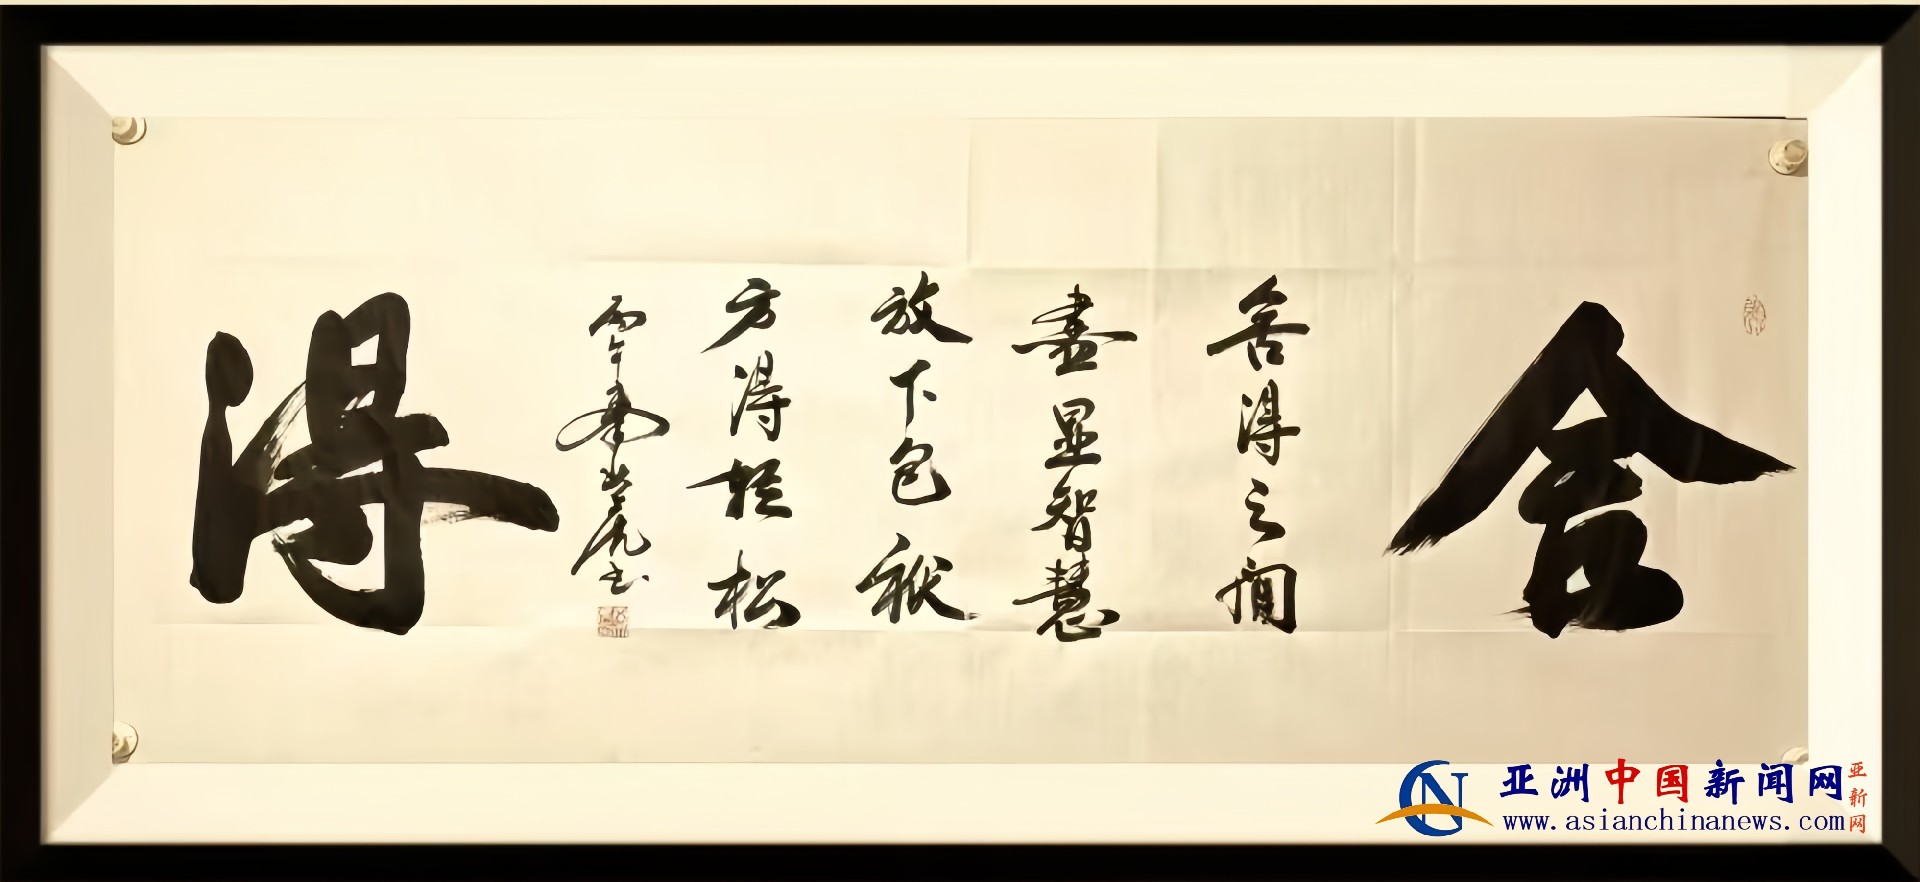 舍
舍得之間
盡显智慧
放下包袱
方得轻松
丙午 书
得
亚洲中国新闻网
www.asianchinanews.com
亚新网